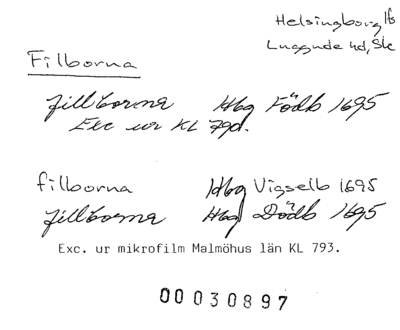 Helsingborg lfs
Luggude hd, Sk
Filborna
Fillborna Hbg Födb 1695
Exc ur KL 79d.
filborna Hbg Vigselb 1695
Fillborna Hbg Dödb 1695
Exc. ur mikrofilm Malmöhus län KL 793.
00030897